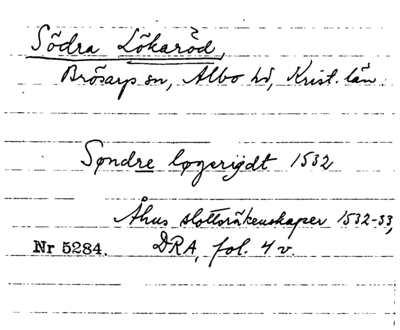 Södra Lökaröd,
Brösarps sn, Albo hd, Krist. län
Søndre løgerigdt 1532
Åhus slottsräkenskaper 1532-33,
Nr 5284. DRA, fol. 4 v.